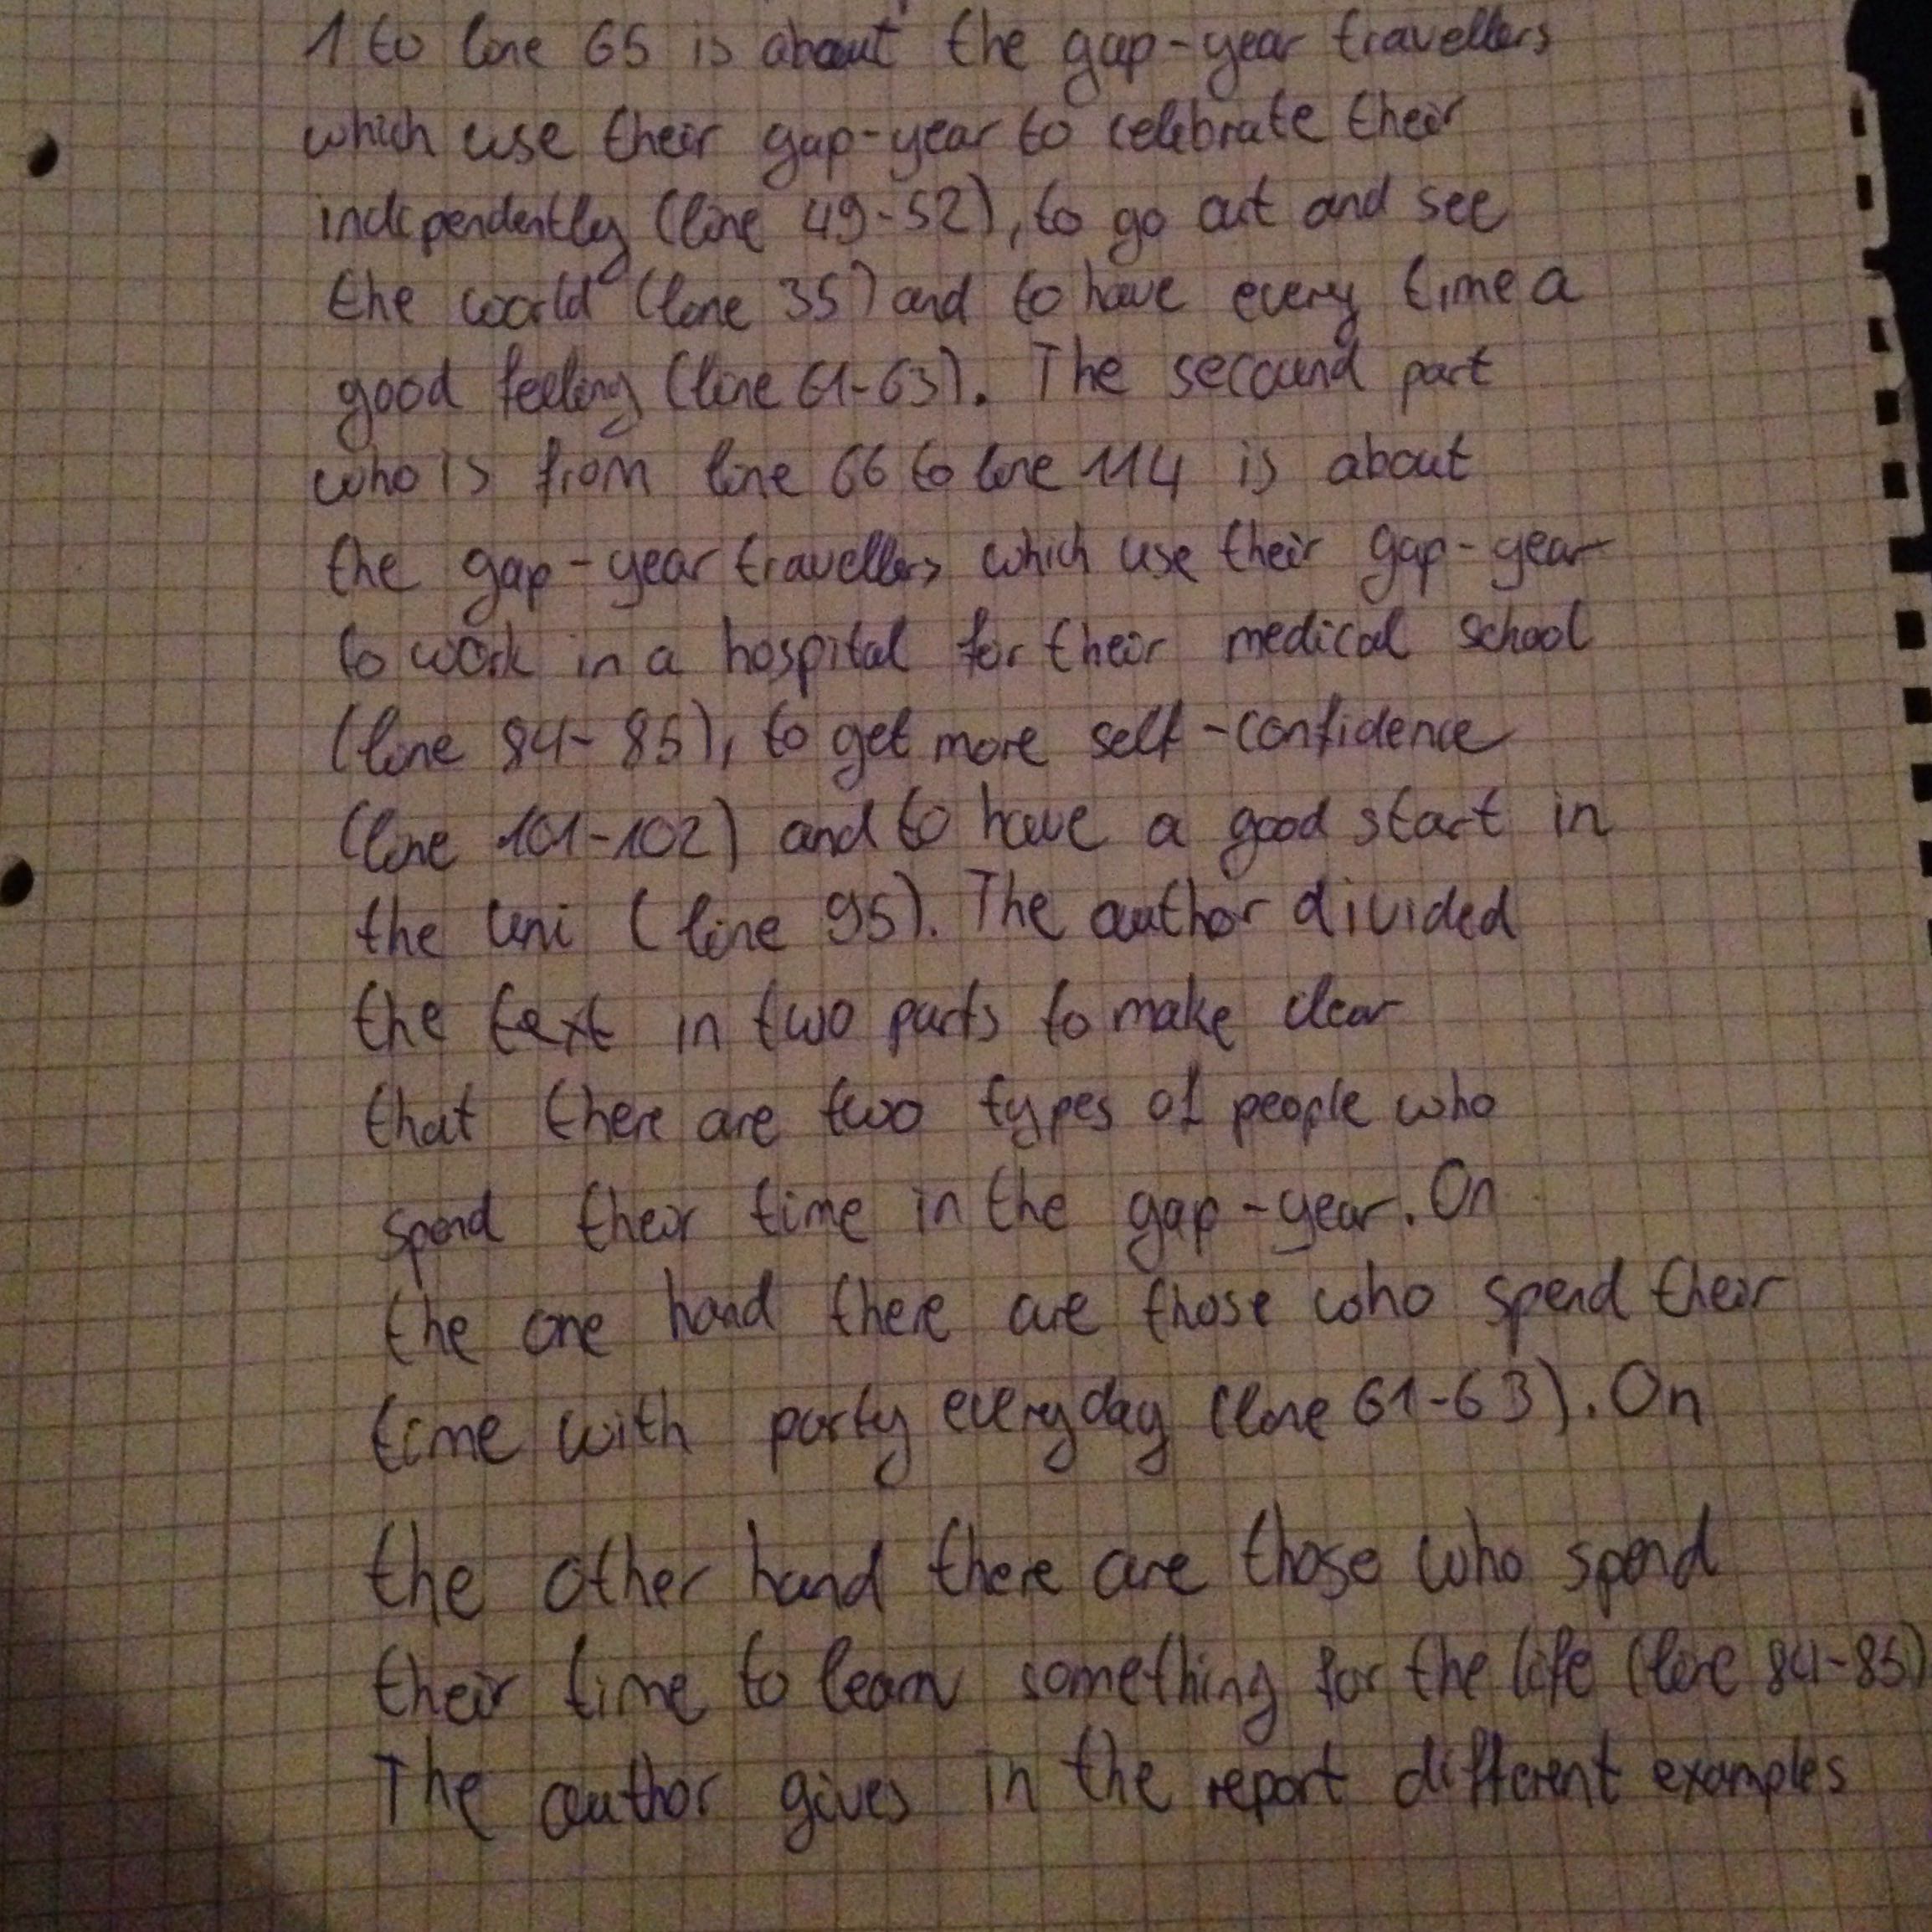 1 to line 65 is about the gap-year travellers
which use their gap-year to celebrate their
independently (line 49-52), to go out and see
the world (line 35) and to have every time a
good feeling (line 61-63). The secound part
who is from line 66 to line 114 is about
the gap-year travellers which use their gap-year
to work in a hospital for their medical school
(line 84-85), to get more self-confidence
(line 101-102) and to have a good start in
the uni (line 95). The author divided
the text in two parts to make clear
that there are two types of people who
spend their time in the gap-year. On
the one hand there are those who spend their
time with party everyday (line 61-63). On
the other hand there are those who spend
their time to learn something for the life (line 84-85)
The author gives in the report different examples